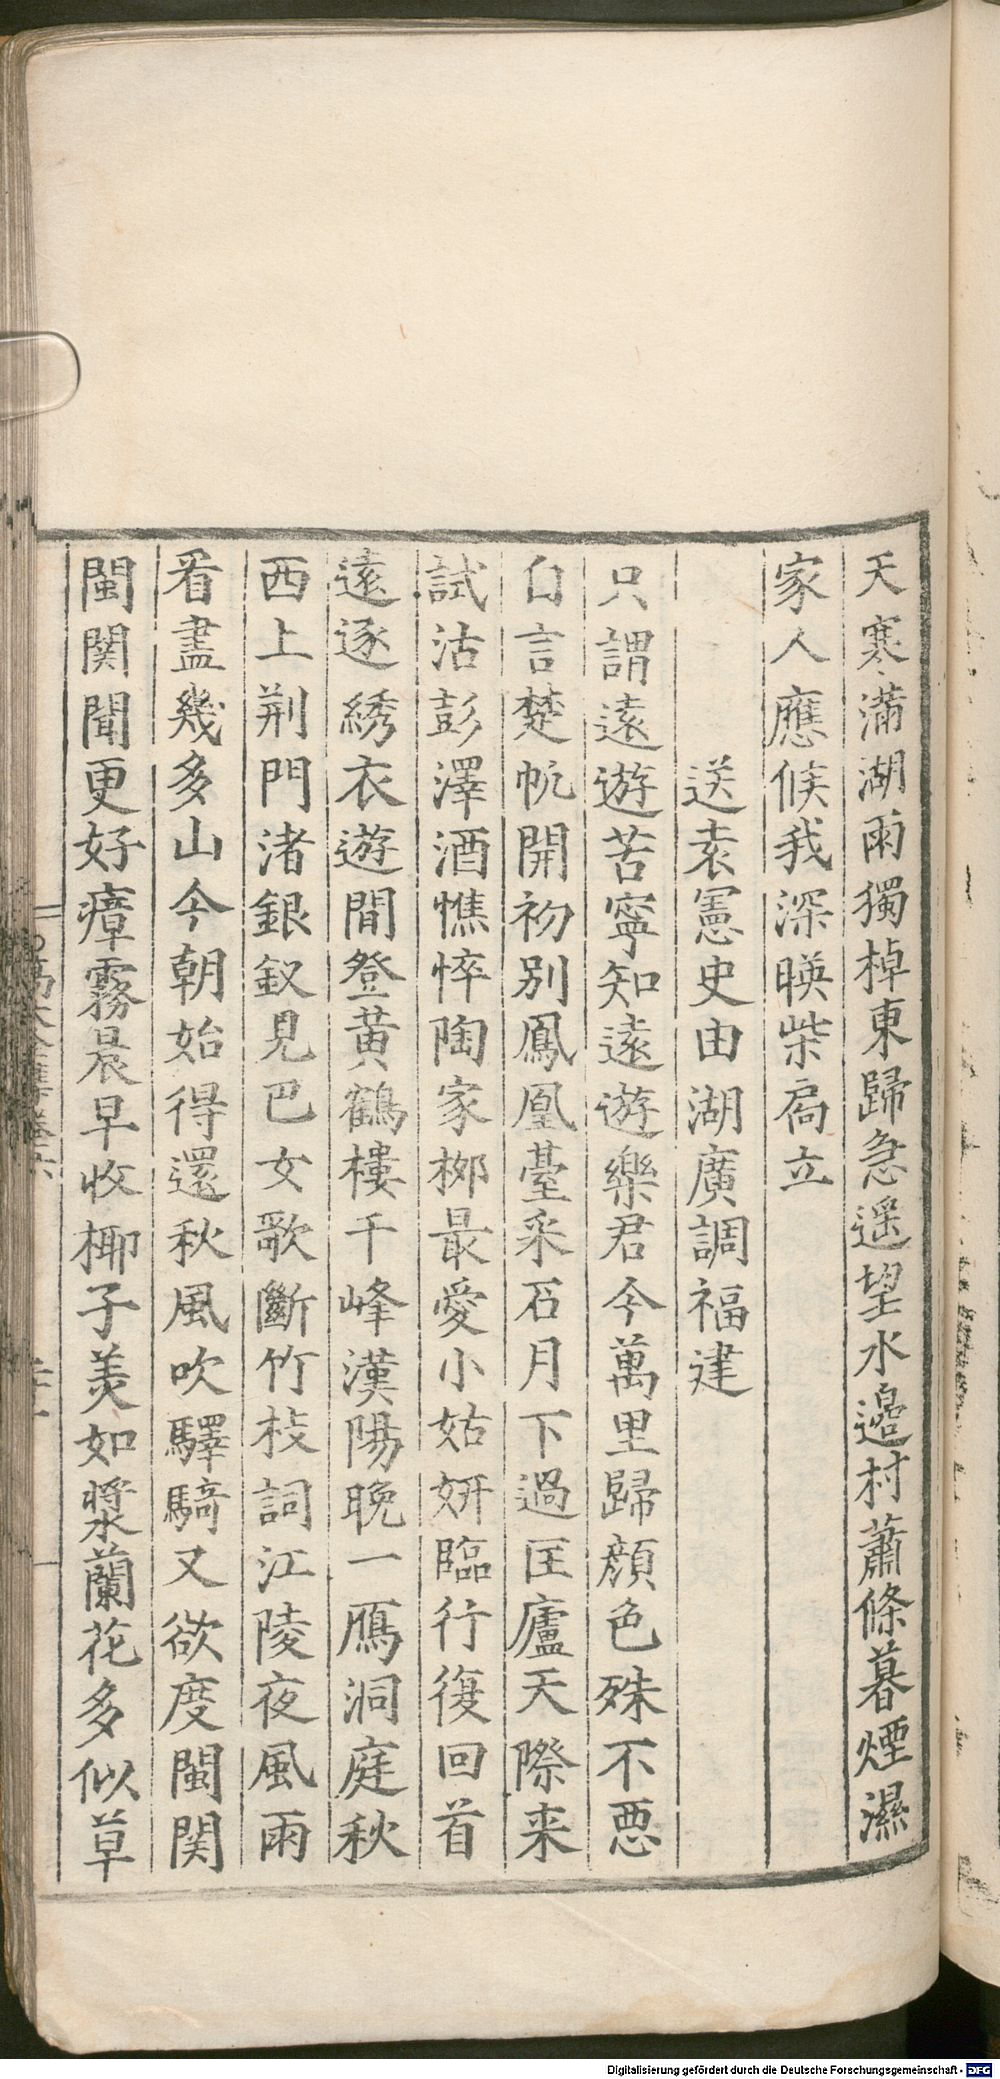 天寒滿湖雨獨棹東歸急遥望水邊村蕭條暮煙濕
家人應候我深暎柴扃立
送袁憲史由湖廣調福建
只謂遠遊苦寧知遠遊樂君今萬里歸顔色殊不悪
自言楚帆開初別鳳凰臺采石月下過匡廬天際来
試沽彭澤酒憔悴陶家栁最愛小姑妍臨行復回首
遠逐綉衣遊間登黄鶴樓千峰漢陽晩一鴈洞庭秋
西上荆門渚銀釵見巴女歌斷竹枝詞江陵夜風雨
看盡幾多山今朝始得還秋風吹驛騎又欲度閩関
閩関聞更好瘴霧晨早收椰子美如漿蘭花多似草
髙太
Digitalisierung gefördert durch die Deutsche Forschungsgemeinschaft - DFG